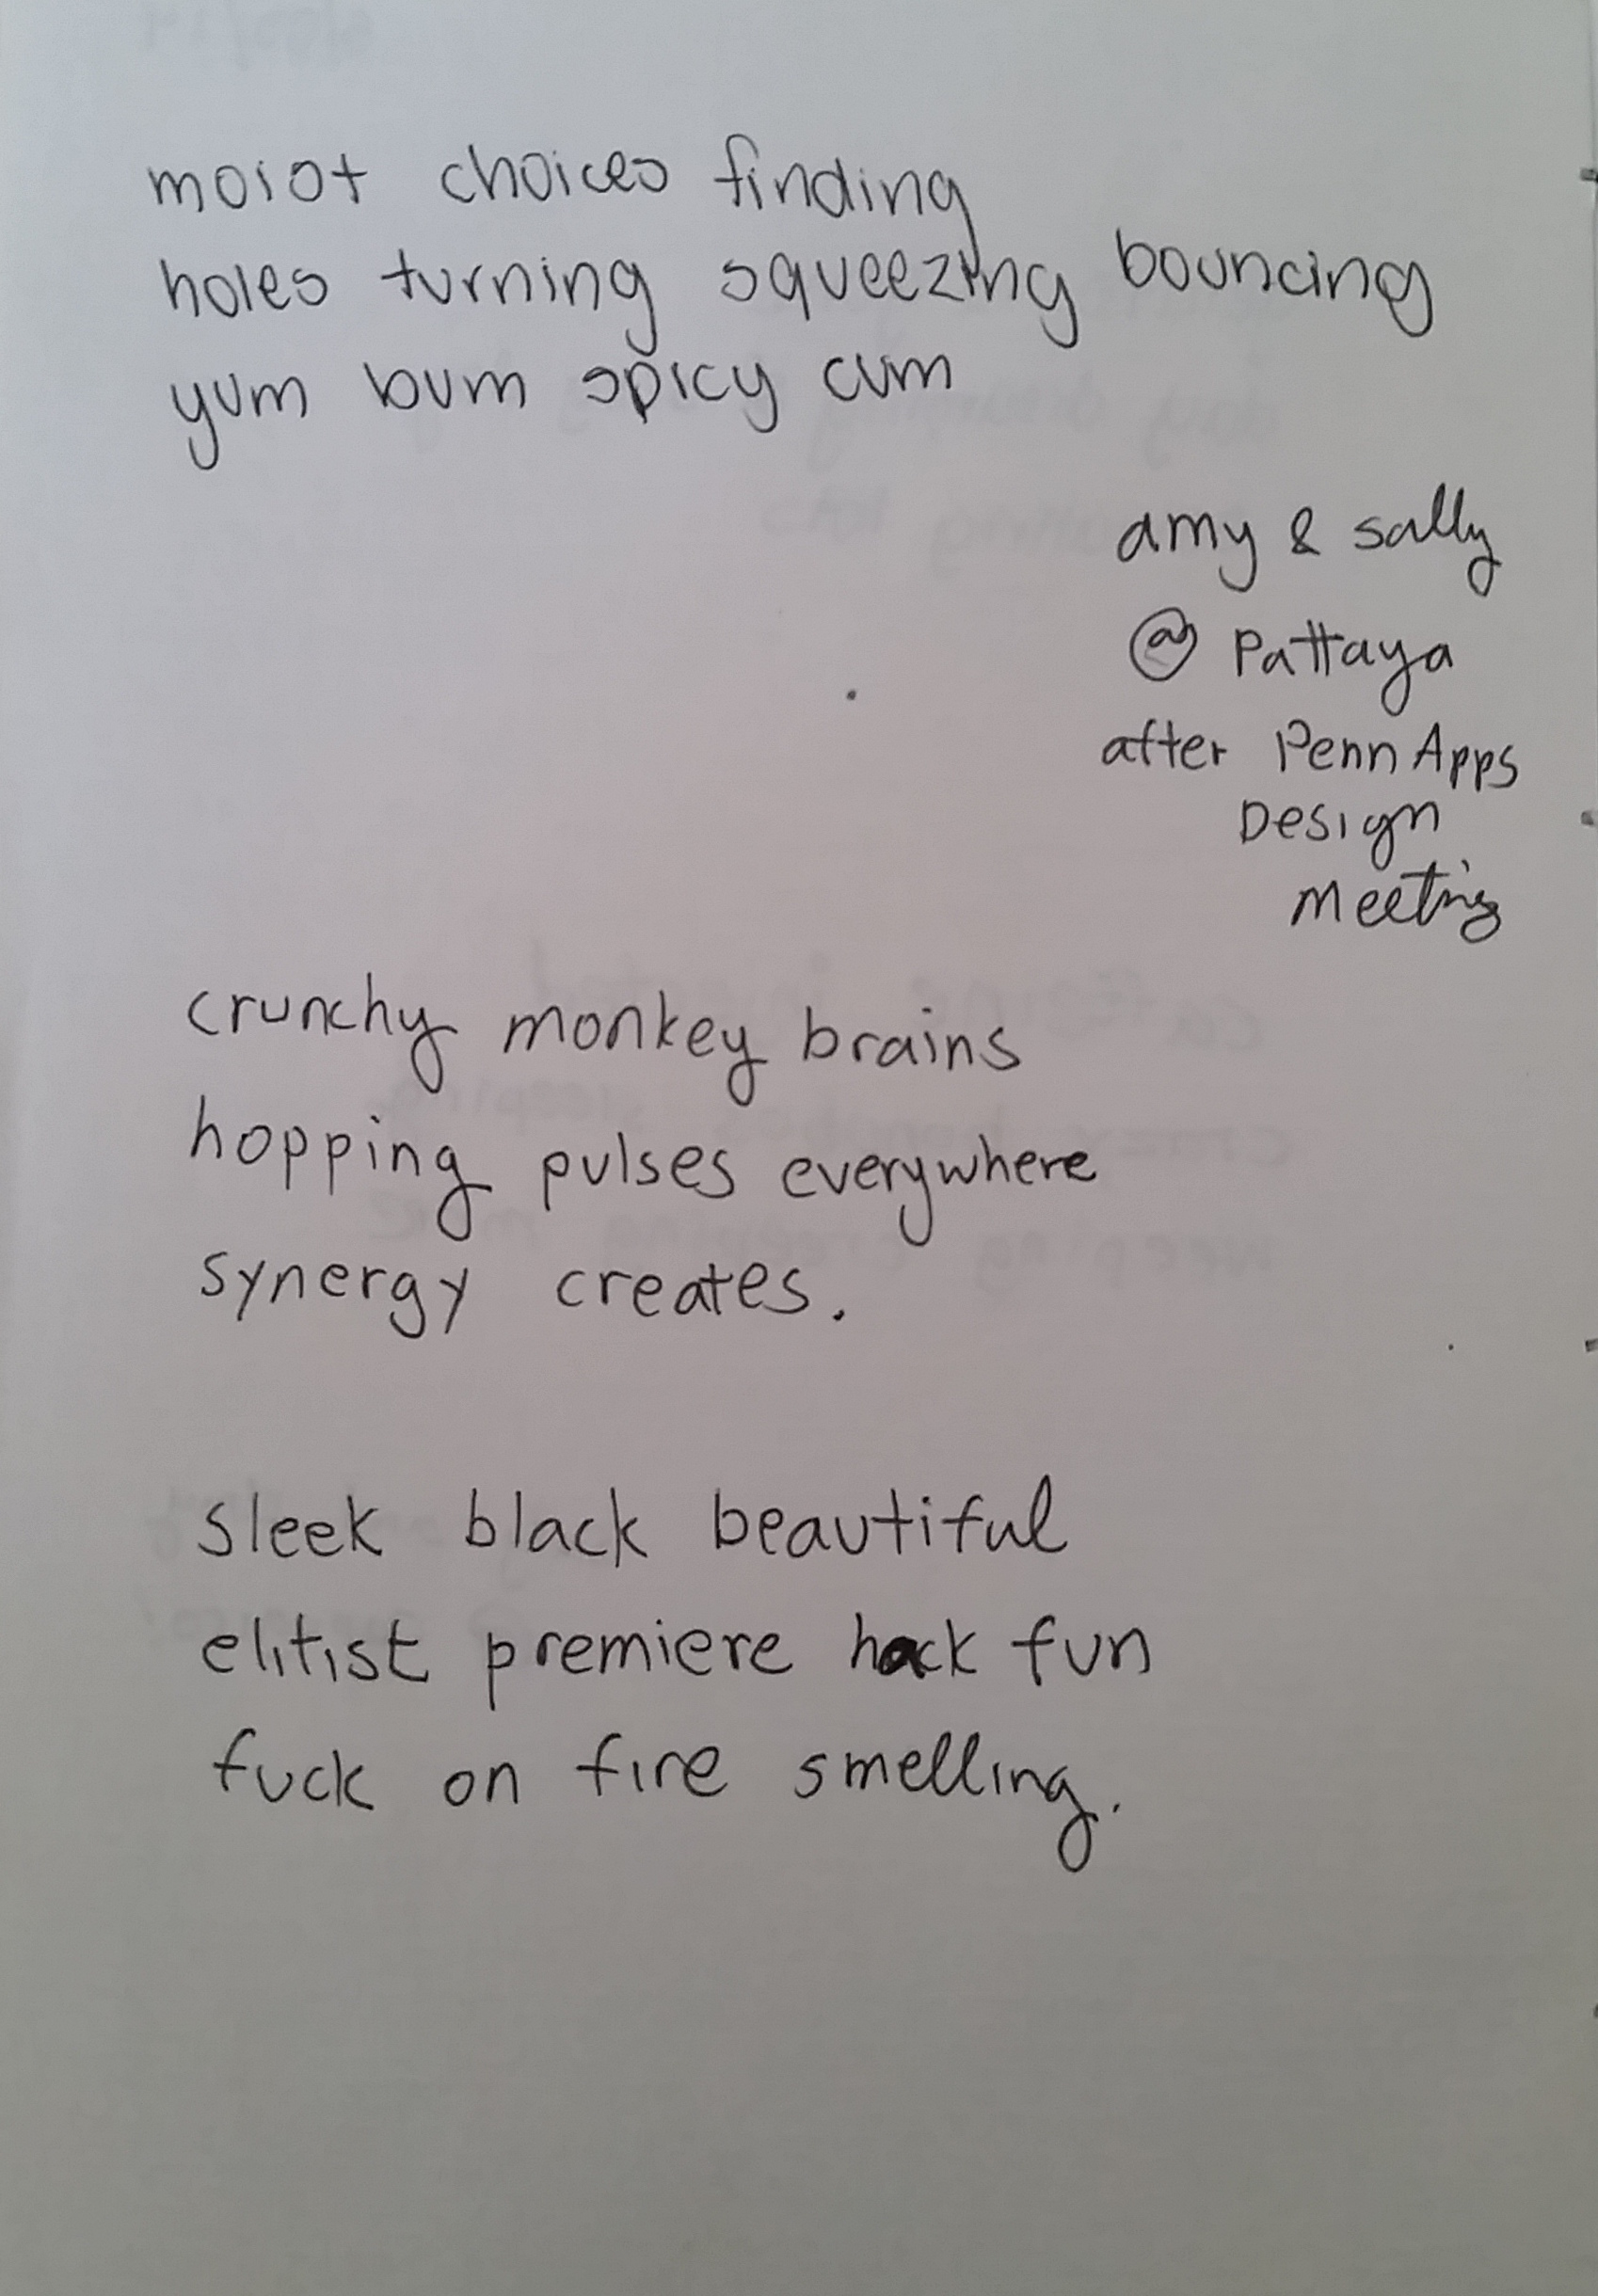 moist choices finding
holes turning squeezing bouncing
yum bum spicy cum
amy & sally
@ Pattaya
after Penn Apps
Design
meeting
crunchy monkey brains
hopping pulses everywhere
synergy creates.
sleek black beautiful
elitist premiere hack fun
fuck on fire smelling.